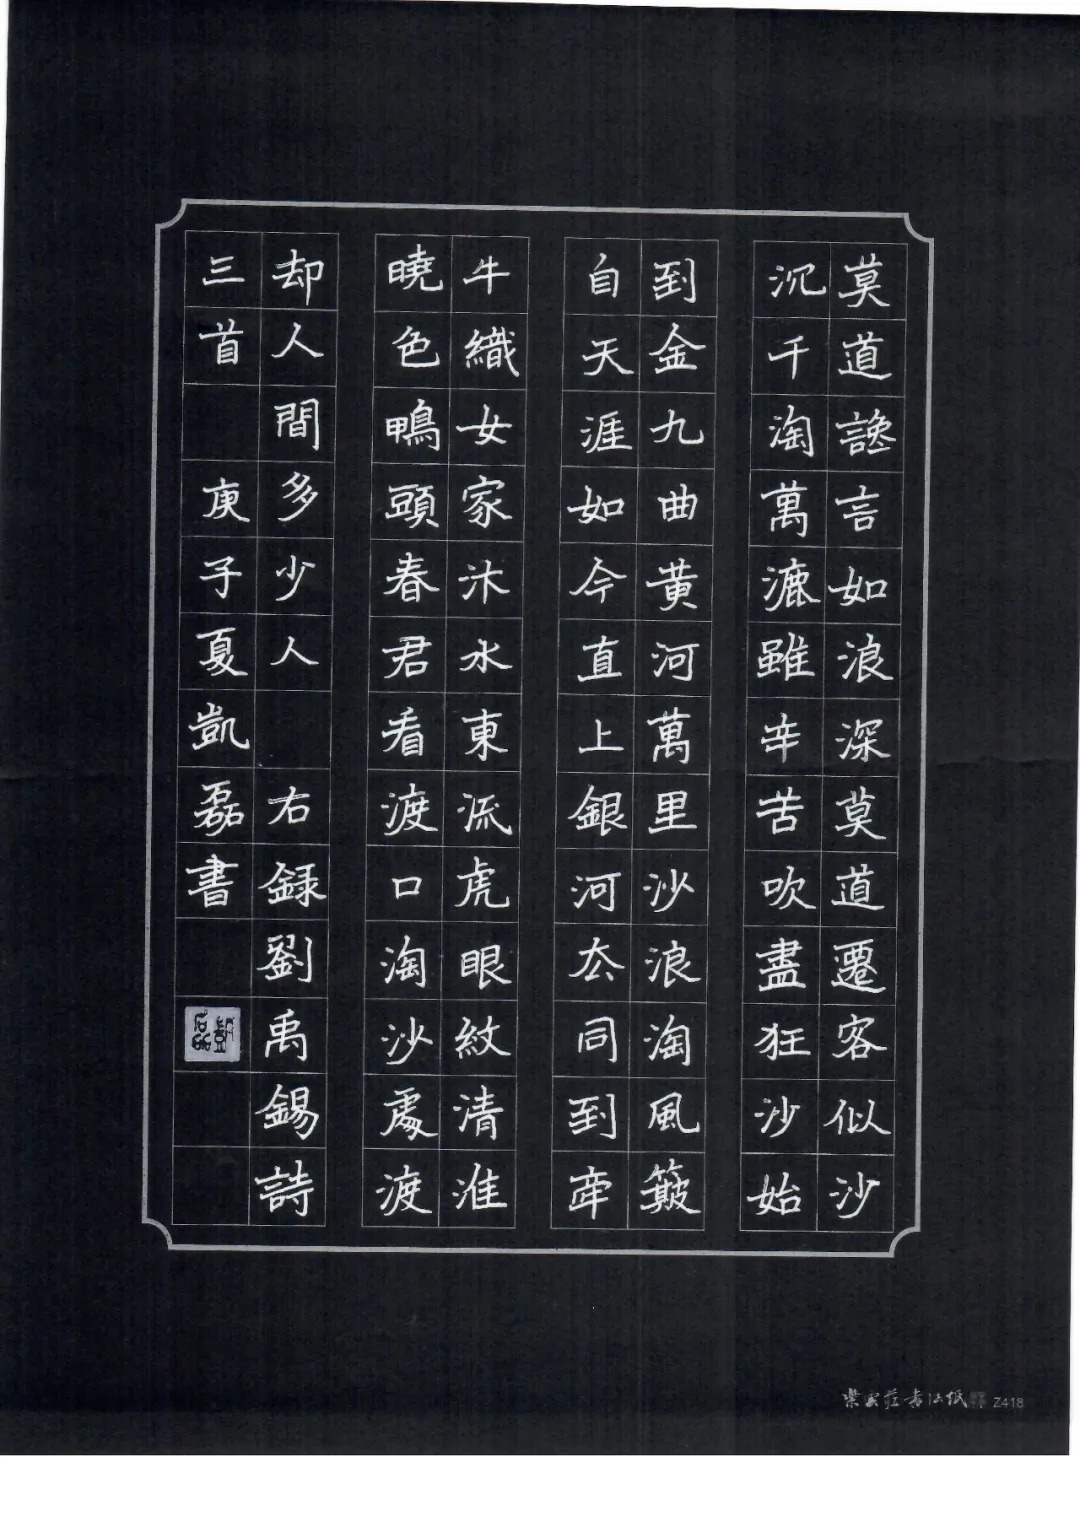 莫道讒言如浪深莫道遷客似沙
沉千淘萬漉雖辛苦吹盡狂沙始
到金九曲黄河萬里沙浪淘風簸
自天涯如今直上銀河厺同到牽
牛織女家汴水東流虎眼紋清淮
曉色鴨頭春君看渡口淘沙處渡
却人間多少人 右録劉禹錫詩
三首 庚子夏凱磊書
凱磊
紫云莊書法紙 Z418